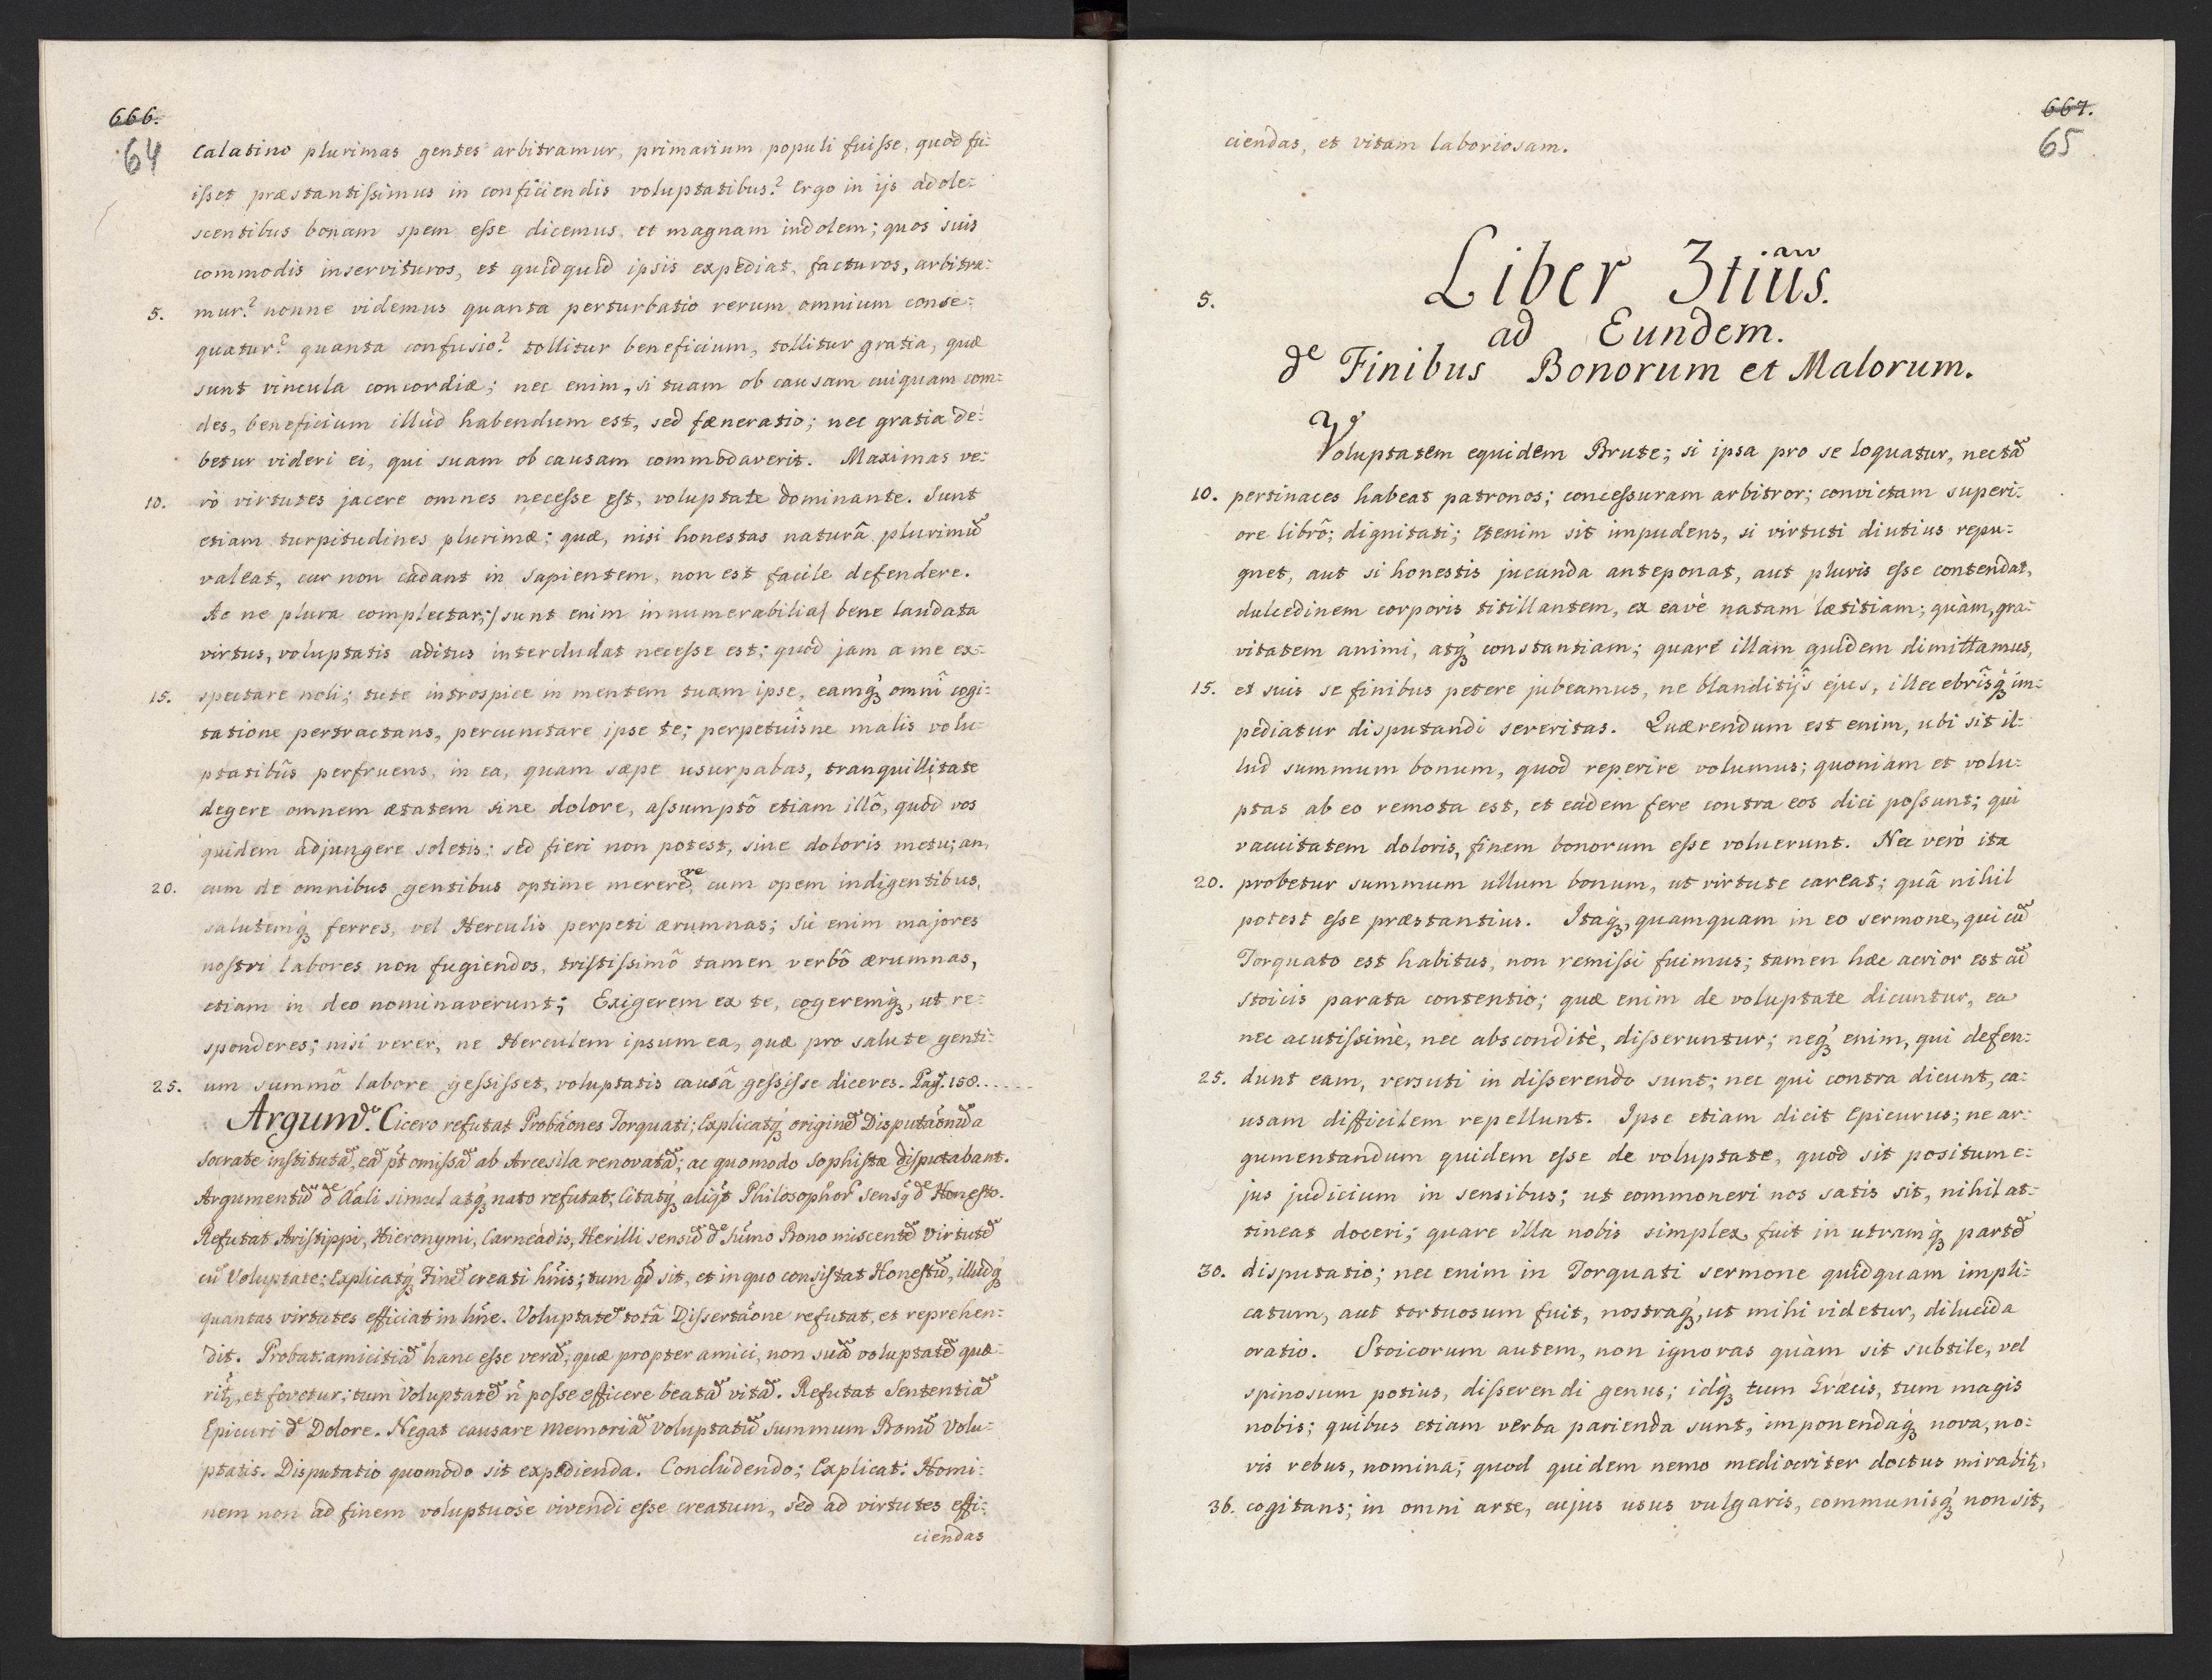 666.
64
Calatino plurimas gentes arbitramur, primarium populi fuiſse, quòd fu=
iſset præstantiſsimus in conficiendis voluptatibus? Ergo in ijs adole=
scentibus bonam spem eſse dicemus, et magnam indolem; quos suis
commodis inservituros, et quidquid ipsis expediat, facturos, arbitra=
5. mur? nonne videmus quanta perturbatio rerum omnium conse=
quatur? quanta confusio? tollitur beneficium, tollitur gratia, quæ
sunt vincula concordiæ; nec enim, si tuam ob causam cuiquam com=
des, beneficium illud habendum est, sed fæneratio; nec gratia de=
betur videri ei, qui suam ob causam commodaverit. Maximas ve=
10. rò virtutes jacere omnes neceſse eſt, voluptate dominante. Sunt
etiam turpitudines plurimæ; quæ, nisi honestas naturâ plurimũ
valeat, cur non cadant in Sapientem, non est facile defendere.
Ac ne plura complectar; /sunt enim innumerabilia/ bene laudata
virtus, voluptatis aditus intercludat neceſse est; quòd jam a me ex=
15. spectare noli; tute introspice in mentem tuam ipse, eamq́ꝫ omnî cogi=
tatione pertractans, percunctare ipse te; perpetuîsne malis volu=
ptatibûs perfruens, in ea, quam sæpe usurpabas, tranquillitate
degere omnem ætatem sine dolore, aſsumptô etiam illô, quòd vos
quidem adjungere soletis; sed fieri non potest, sine doloris metu; an,
20. cum de omnibus gentibus optime mererẽ,re cum opem indigentibus,
salutemq́ꝫ ferres, vel Herculis perpeti ærumnas; Sic enim majores
noſtri labores non fugiendos, triſtiſsimô tamen verbô ærumnas,
etiam in deo nominaverunt; Exigerem ex te, cogeremq́ꝫ, ut re=
sponderes; nisi verer, ne Herculem ipsum ea, quæ pro salute genti=
25. um summô labore geſsiſset, voluptatis causâ geſsiſse diceres. Pag. 158......
Argum. Cicero refutat Probãones Torquati; Explicatq́ꝫ originẽ Disputãonũ a
Socrate inſtitutã, eã pt̃ omiſsã ab Arcesila renovatã; ac quomodo Sophiſtæ diſputabant.
Argumentũ de Aãli simul atq́ꝫ nato refutat; Citatq́ꝫ aliqt̃ Philosophor̃ sensꝫ̃ de Honeſto.
Refutat Ariſtippi, Hieronymi, Carneàdis, Herilli sensũ de Sũmo Bono miscentẽ virtutẽ
cũ Voluptate; Explicatq́ꝫ Finẽ creati hñis; tum qd̃ sit, et in quo consiſtat Honeſtũ, illudq́ꝫ
quantas virtutes efficiat in hñe. Voluptatẽ totâ Diſsertãone refutat, et reprehen=
dit. Probat: amicitiã hanc eſse verã, quæ propter amici, non suã voluptatẽ quæ=
rit̃ꝫ, et fovetur; tum Voluptatẽ ñ poſse efficere beatã vitã. Refutat Sententiã
Epicuri de Dolore. Negat causare memoriã voluptatũ Summum Bonũ Volu=
ptatis. Disputatio quomodo sit expedienda. Concludendo; Explicat: Homi=
nem non ad finem voluptuosè vivendi eſse creatum, sed ad virtutes effi=
ciendas
667.
65
ciendas, et vitam laboriosam.
5. Liber 3tiüs.
ad Eundem.
de Finibus Bonorum et Malorum.
Voluptatem equidem Brute; si ipsa pro se loquatur, nec tã
10. pertinaces habeat patronos; conceſsuram arbitror; convictam superi=
ore librô; dignitati; Etenim sit impudens, si virtuti diutius repu=
gnet, aut si honestis jucunda anteponat, aut pluris eſse contendat,
dulcedinem corporis titillantem, ex eavè natam lætitiam; quàm, gra=
vitatem animi, atq́ꝫ constantiam; quarè illam quidem dimittamus,
15. et suis se finibus petere jubeamus, ne blanditijs ejus, illecebrîsq́ꝫ im=
pediatur disputandi severitas. Quærendum est enim, ubi sit il=
lud summum bonum, quod reperire volumus; quoniam et volu=
ptas ab eo remota est, et eadem fere contra eos dici poſsunt; qui
vacuitatem doloris, finem bonorum eſse voluerunt. Nec verò ita
20. probetur summum ullum bonum, ut virtute careat; quâ nihil
potest eſse præstantius. Itaq́ꝫ, quamquam in eo sermone, qui cũ
Torquato est habitus, non remiſsi fuimus; tamen hæc acrior est cũ
Stoicis parata contentio; quæ enim de voluptate dicuntur, ea
nec acutiſsimè, nec abscondìtè, diſseruntur; neq́ꝫ enim, qui defen=
25. dunt eam, versuti in diſserendo sunt; nec qui contra dicunt, ca=
usam difficilem repellunt. Ipse etiam dicit Epicurus; ne ar=
gumentandum quidem eſse de voluptate, quòd sit positum e=
jus judicium in sensibus; ut commoneri nos satis sit, nihil at=
tineat doceri; quare illa nobis simplex fuit in utramq́ꝫ partẽ
30. disputatio; nec enim in Torquati sermone quidquam impli=
catum, aut tortuosum fuit, nostraq́ꝫ, ut mihi videtur, dilucida
oratio. Stoicorum autem, non ignoras quàm sit subtile, vel
spinosum potius, diſserendi genus; idq́ꝫ tum Græcis, tum magis
nobis; quibus etiam verba parienda sunt, imponendaq́ꝫ nova, no=
vis rebus, nomina; quod quidem nemo mediocriter doctus mirabitꝫ,
36. cogitans; in omni arte, cujus usus vulgaris, communisq́ꝫ non sit,